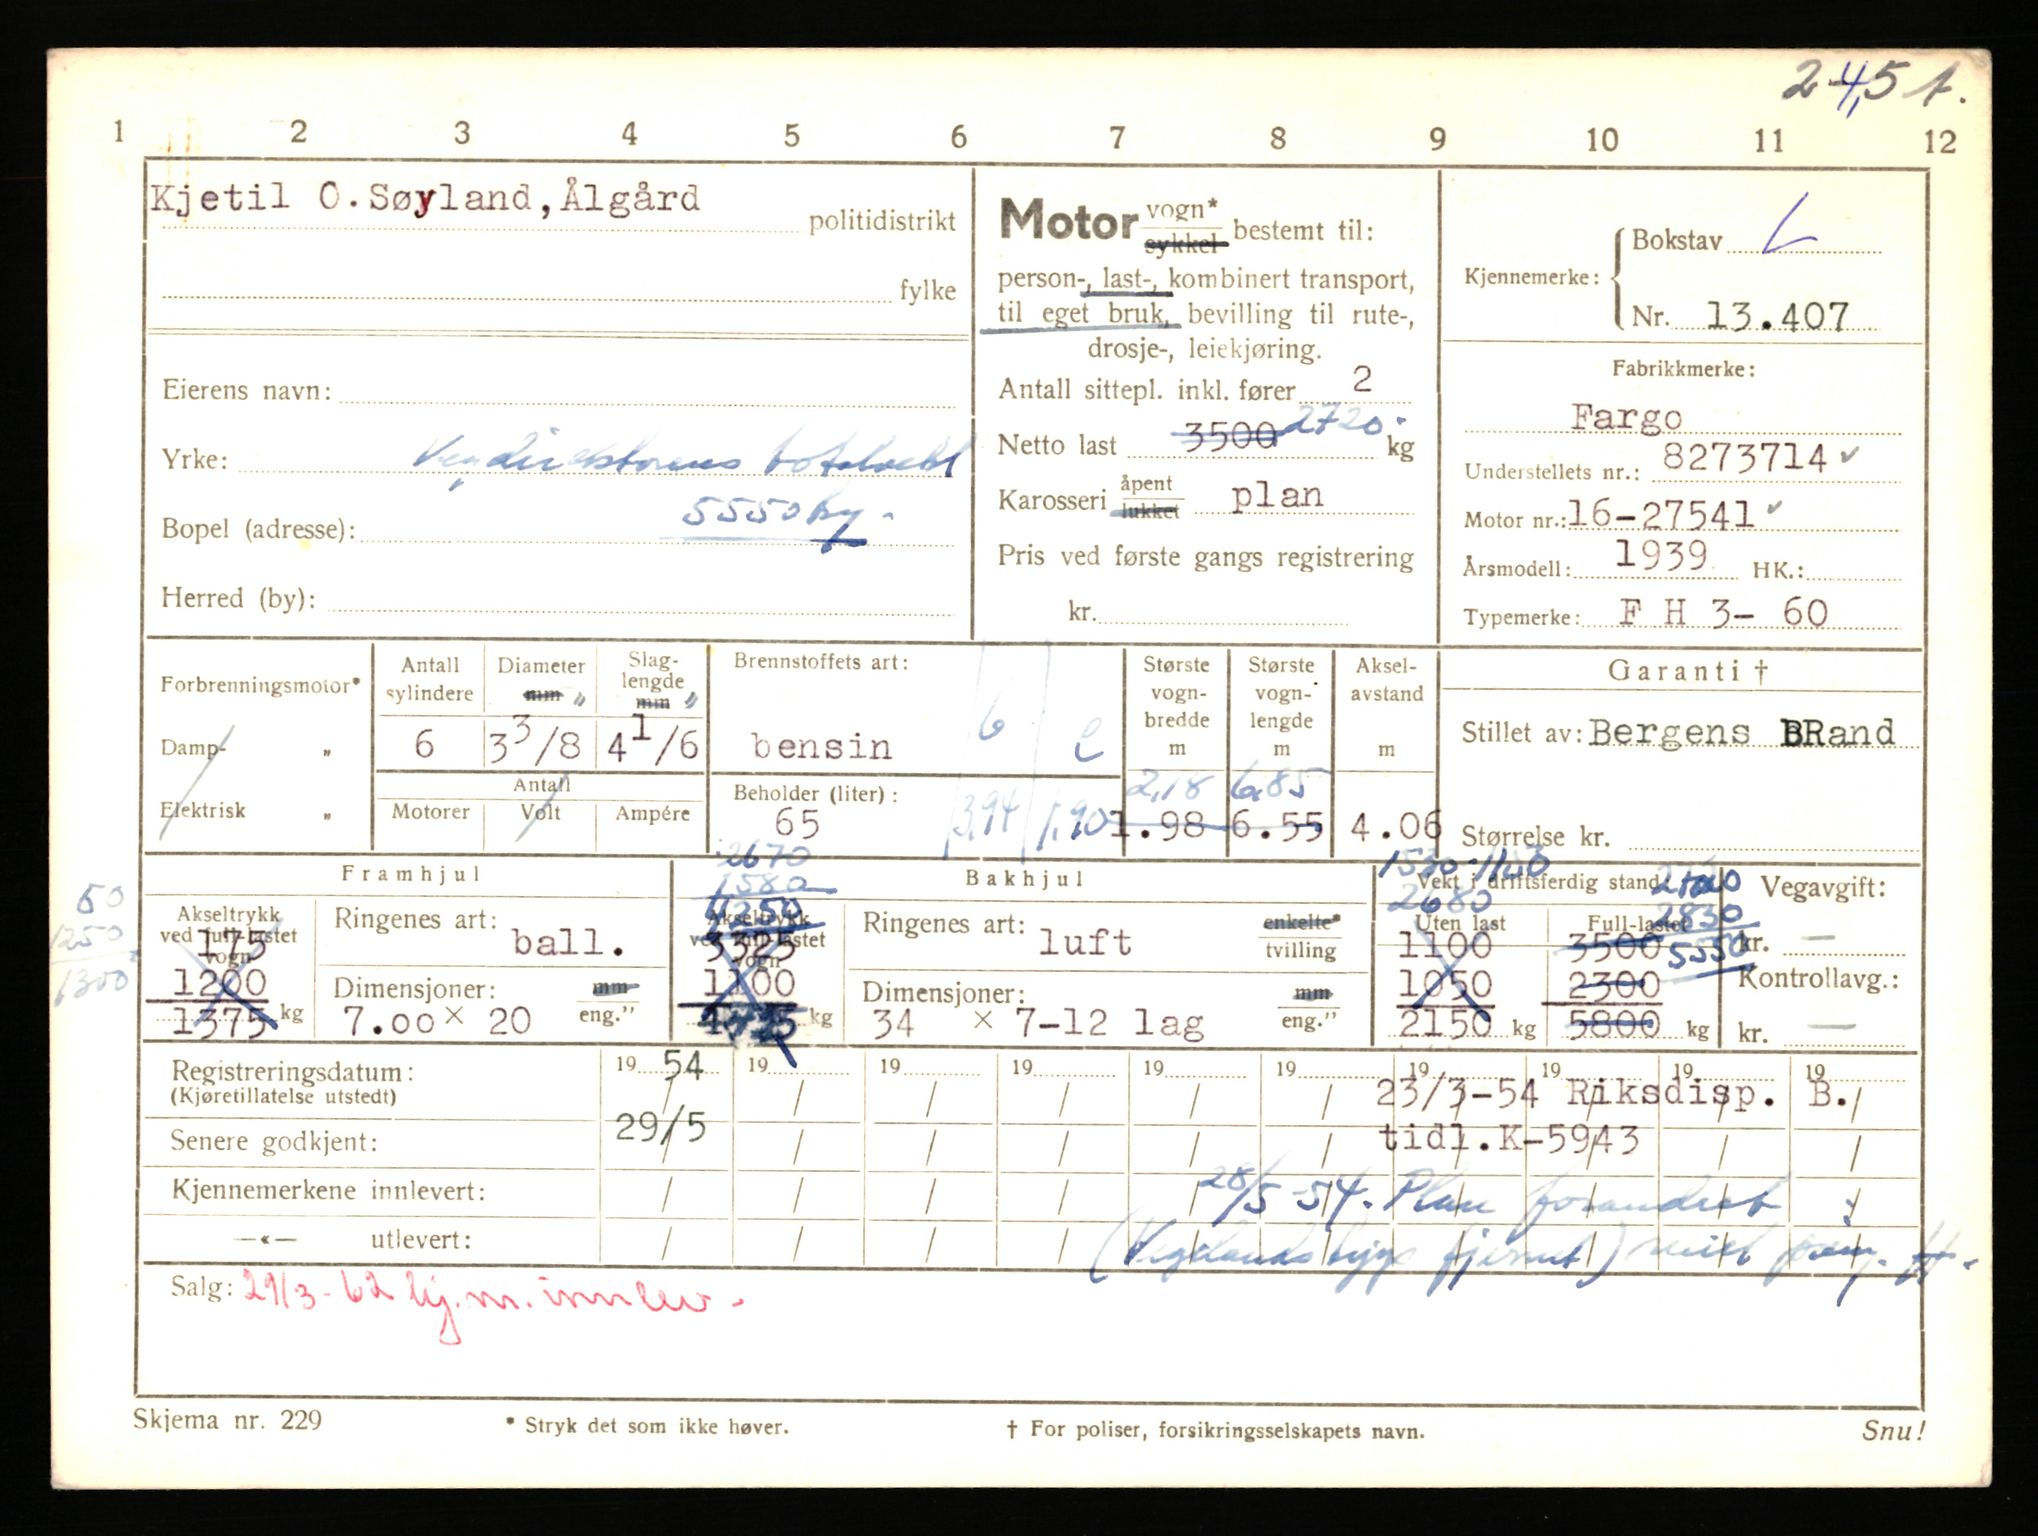 24,5 t.
1 2 3 4 5 6 7 8 9 10 11 12
Kjetil O. Søyland, Ålgård politidistrikt
fylke
Eierens navn:
Yrke: Vegdirektorens totalvekt
Bopel (adresse): 5550 kg.
Herred (by):
Motor vogn* sykkel bestemt til:
person-, last-, kombinert transport,
til eget bruk, bevilling til rute-,
drosje-, leiekjøring.
Antall sittepl. inkl. fører 2
Netto last 3500 2720 kg
Karosseri åpent lukket plan
Pris ved første gangs registrering
kr.
Kjennemerke: Bokstav L
Nr. 13.407
Fabrikkmerke:
Fargo
Understellets nr.: 8273714
Motor nr.: 16-27541
Årsmodell: 1939 HK.:
Typemerke: F H 3- 60
Forbrenningsmotor*
Damp- "
Elektrisk "
Antall sylindere
6
Diameter mm "
3 3/8
Slag-lengde mm "
4 1/6
Antall
Motorer Volt Ampére
Brennstoffets art:
bensin
b e
Beholder (liter):
65
3,94 1,90
Største vogn-bredde m
2,18
1.98
Største vogn-lengde m
6,85
6.55
Aksel-avstand m
4.06
Garanti †
Stillet av: Bergens BRand
Størrelse kr.
Framhjul
50
1250
1300
Akseltrykk ved full-lastet vogn
175
1200
1375 kg
Ringenes art: ball.
Dimensjoner: mm eng."
7.00 × 20
Bakhjul
2670
1580
4250
Akseltrykk ved full-lastet vogn
3325
1100
kg
Ringenes art: luft enkelte* tvilling
Dimensjoner: mm eng."
34 × 7-12 lag
1530-1150
Vekt i driftsferdig stand
2680
Uten last
1100
1050
2150 kg
2720
2830
Full-lastet
5550
3500
2300
5800 kg
Vegavgift:
kr. —
Kontrollavg.:
kr. —
Registreringsdatum: 19 54 19 19 19 19 19 19 19 19 19
(Kjøretillatelse utstedt)
23/3-54 Riksdisp. B.
Senere godkjent: 29/5
tidl.K-5943
Kjennemerkene innlevert:
28/5 54. Plan forandret
—«— utlevert:
(Vegelands bygs fjernet)
Salg: 29/3-62 kj.m. innlev.
Skjema nr. 229
* Stryk det som ikke høver.
† For poliser, forsikringsselskapets navn.
Snu!